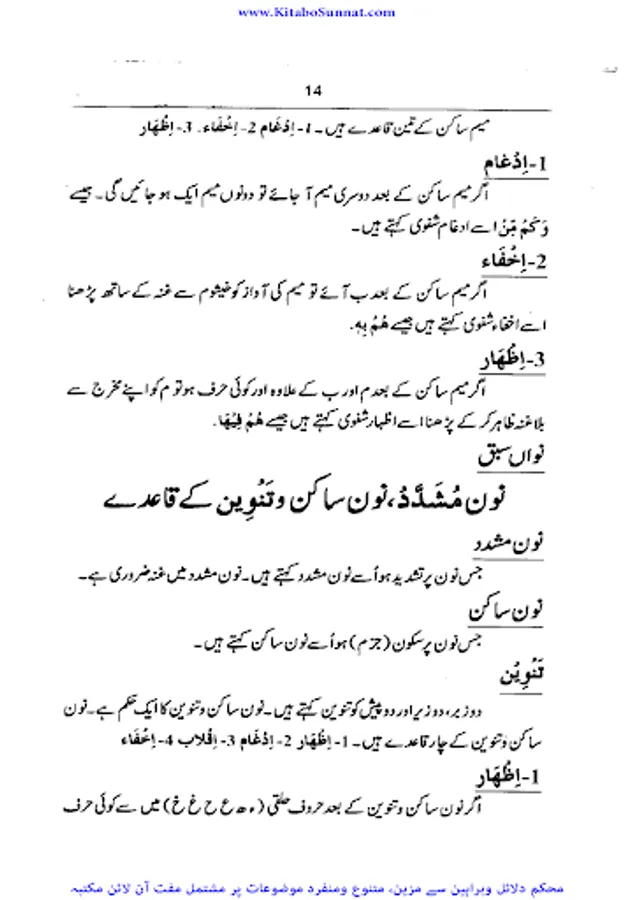 www.KitaboSunnat.com
14
میم ساکن کے تین قاعدے ہیں۔ 1- اِدْغَام 2- اِخْفَاء. 3- اِظْهَار
1-اِدْغَام
اگر میم ساکن کے بعد دوسری میم آ جائے تو دونوں میم ایک ہو جائیں گی۔ جیسے
وَكَمْ مِّنْ اسے ادغام شفوی کہتے ہیں۔
2-اِخْفَاء
اگر میم ساکن کے بعد ب آئے تو میم کی آواز کو خیشوم سے غنہ کے ساتھ پڑھنا
اسے اخفاء شفوی کہتے ہیں جیسے هُمْ بِهٖ.
3-اِظْهَار
اگر میم ساکن کے بعد م اور ب کے علاوہ اور کوئی حرف ہو تو م کو اپنے مخرج سے
بلا غنہ ظاہر کر کے پڑھنا اسے اظہار شفوی کہتے ہیں جیسے هُمْ فِيْهَا.
نواں سبق
نون مُشَدَّدْ، نون ساکن و تَنْوِين کے قاعدے
نون مشدد
جس نون پر تشدید ہو اُسے نون مشدد کہتے ہیں۔ نون مشدد میں غنہ ضروری ہے۔
نون ساکن
جس نون پر سکون (جزم) ہو اُسے نون ساکن کہتے ہیں۔
تَنْوِيْن
دو زبر، دو زیر اور دو پیش کو تنوین کہتے ہیں۔ نون ساکن و تنوین کا ایک حکم ہے۔ نون
ساکن و تنوین کے چار قاعدے ہیں۔ 1- اِظْهَار 2- اِدْغَام 3- اِقْلاب 4- اِخْفَاء
1-اِظْهَار
اگر نون ساکن و تنوین کے بعد حروف حلقی (ء ھ ع ح غ خ) میں سے کوئی حرف
محکم دلائل وبراہین سے مزین، متنوع ومنفرد موضوعات پر مشتمل مفت آن لائن مکتبہ